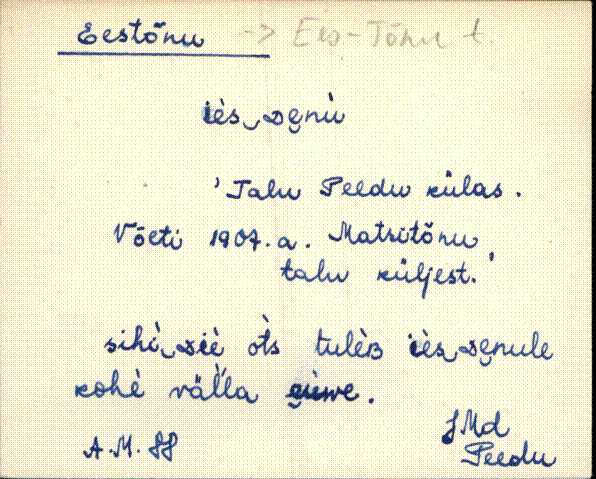 Eestõnu -> Ees-Tõnu t.
iès‿ᴅe̮nù
'Talu Peedu külas.
Võeti 1907.a. Matsitõnu
talu küljest.'
sihì‿ᴅié ot̀s tulèʙ iès‿ᴅe̮nule
kohè väĺĺa
A.M. 88
JMd
Peedu